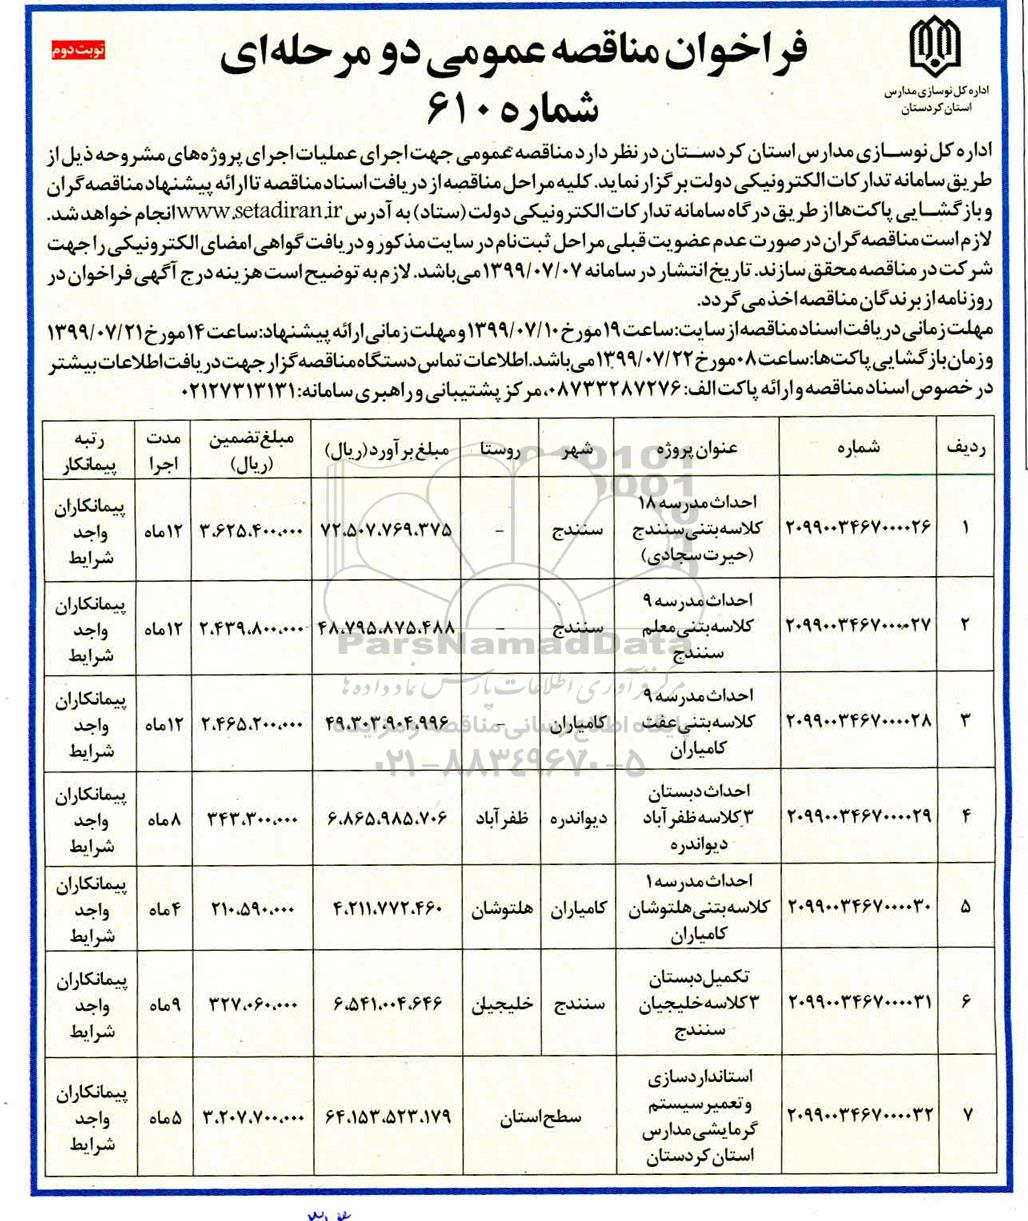 نوبت دوم
اداره کل نوسازی مدارس
استان کردستان
فراخوان مناقصه عمومی دو مرحله‌ای
شماره ۶۱۰
اداره کل نوسازی مدارس استان کردستان در نظر دارد مناقصه عمومی جهت اجرای عملیات اجرای پروژه‌های مشروحه ذیل از
طریق سامانه تدارکات الکترونیکی دولت برگزار نماید. کلیه مراحل مناقصه از دریافت اسناد مناقصه تا ارائه پیشنهاد مناقصه گران
و بازگشایی پاکت‌ها از طریق درگاه سامانه تدارکات الکترونیکی دولت (ستاد) به آدرس www.setadiran.ir انجام خواهد شد.
لازم است مناقصه گران در صورت عدم عضویت قبلی مراحل ثبت نام در سایت مذکور و دریافت گواهی امضای الکترونیکی را جهت
شرکت در مناقصه محقق سازند. تاریخ انتشار در سامانه ۱۳۹۹/۰۷/۰۷ می‌باشد. لازم به توضیح است هزینه درج آگهی فراخوان در
روزنامه از برندگان مناقصه اخذ می گردد.
مهلت زمانی دریافت اسناد مناقصه از سایت: ساعت ۱۹ مورخ ۱۳۹۹/۰۷/۱۰ و مهلت زمانی ارائه پیشنهاد: ساعت ۱۴ مورخ ۱۳۹۹/۰۷/۲۱
و زمان بازگشایی پاکت‌ها: ساعت ۰۸ مورخ ۱۳۹۹/۰۷/۲۲ می‌باشد. اطلاعات تماس دستگاه مناقصه گزار جهت دریافت اطلاعات بیشتر
در خصوص اسناد مناقصه و ارائه پاکت الف: ۰۸۷۳۳۲۸۷۲۷۶، مرکز پشتیبانی و راهبری سامانه: ۰۲۱۲۷۳۱۳۱۳۱
ردیف شماره عنوان پروژه شهر روستا مبلغ برآورد (ریال) مبلغ تضمین (ریال) مدت اجرا رتبه پیمانکار
۱ ۲۰۹۹۰۰۳۴۶۷۰۰۰۰۲۶ احداث مدرسه ۱۸ کلاسه بتنی سنندج (حیرت سجادی) سنندج - ۷۲،۵۰۷،۷۶۹،۳۷۵ ۳،۶۲۵،۴۰۰،۰۰۰ ۱۲ ماه پیمانکاران واجد شرایط
۲ ۲۰۹۹۰۰۳۴۶۷۰۰۰۰۲۷ احداث مدرسه ۹ کلاسه بتنی معلم سنندج سنندج - ۴۸،۷۹۵،۸۷۵،۴۸۸ ۲،۴۳۹،۸۰۰،۰۰۰ ۱۲ ماه پیمانکاران واجد شرایط
۳ ۲۰۹۹۰۰۳۴۶۷۰۰۰۰۲۸ احداث مدرسه ۹ کلاسه بتنی عفت کامیاران کامیاران - ۴۹،۳۰۳،۹۰۴،۹۹۶ ۲،۴۶۵،۲۰۰،۰۰۰ ۱۲ ماه پیمانکاران واجد شرایط
۴ ۲۰۹۹۰۰۳۴۶۷۰۰۰۰۲۹ احداث دبستان ۳ کلاسه ظفر آباد دیواندره دیواندره ظفر آباد ۶،۸۶۵،۹۸۵،۷۰۶ ۳۴۳،۳۰۰،۰۰۰ ۸ ماه پیمانکاران واجد شرایط
۵ ۲۰۹۹۰۰۳۴۶۷۰۰۰۰۳۰ احداث مدرسه ۱ کلاسه بتنی هلتوشان کامیاران کامیاران هلتوشان ۴،۲۱۱،۷۷۲،۴۶۰ ۲۱۰،۵۹۰،۰۰۰ ۴ ماه پیمانکاران واجد شرایط
۶ ۲۰۹۹۰۰۳۴۶۷۰۰۰۰۳۱ تکمیل دبستان ۳ کلاسه خلیجیان سنندج سنندج خلیجیان ۶،۵۴۱،۰۰۴،۶۴۶ ۳۲۷،۰۶۰،۰۰۰ ۹ ماه پیمانکاران واجد شرایط
۷ ۲۰۹۹۰۰۳۴۶۷۰۰۰۰۳۲ استانداردسازی و تعمیر سیستم گرمایشی مدارس استان کردستان سطح استان ۶۴،۱۵۳،۵۲۳،۱۷۹ ۳،۲۰۷،۷۰۰،۰۰۰ ۵ ماه پیمانکاران واجد شرایط
ParsNamadData
مرکز فرآوری اطلاعات پارس نماد داده ها
پایگاه اطلاع رسانی مناقصه و مزایده
۰۲۱-۸۸۳۴۹۶۷۰-۵